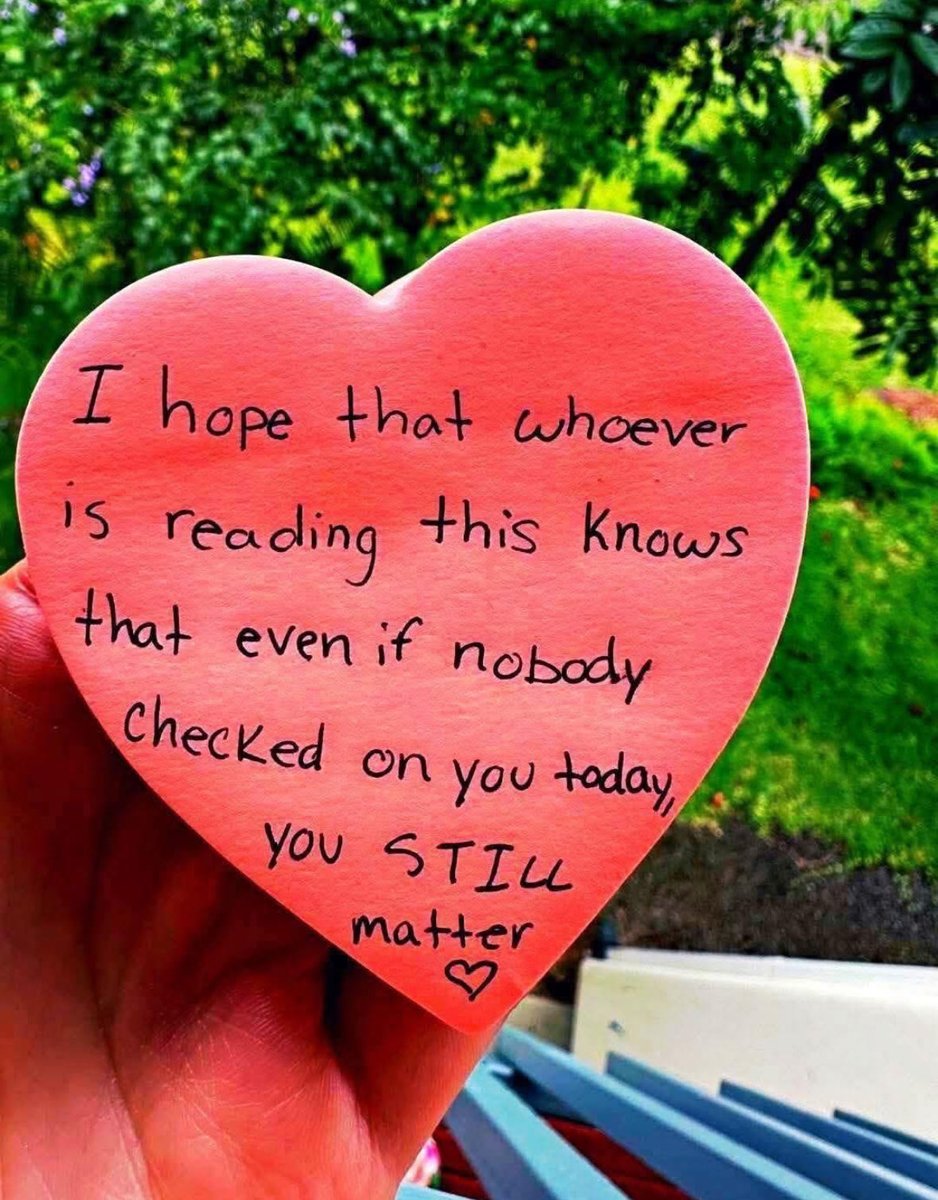 I hope that whoever
is reading this knows
that even if nobody
checked on you today,
you STILL
matter
♡